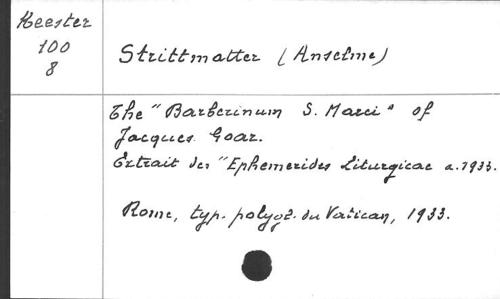 Heester
100
8
Strittmatter (Anselme)
The "Barberinum S. Marci" of
Jacques Goar.
Extrait des "Ephemerides Liturgicae a. 1933.
Rome, typ. polygl. du Vatican, 1933.